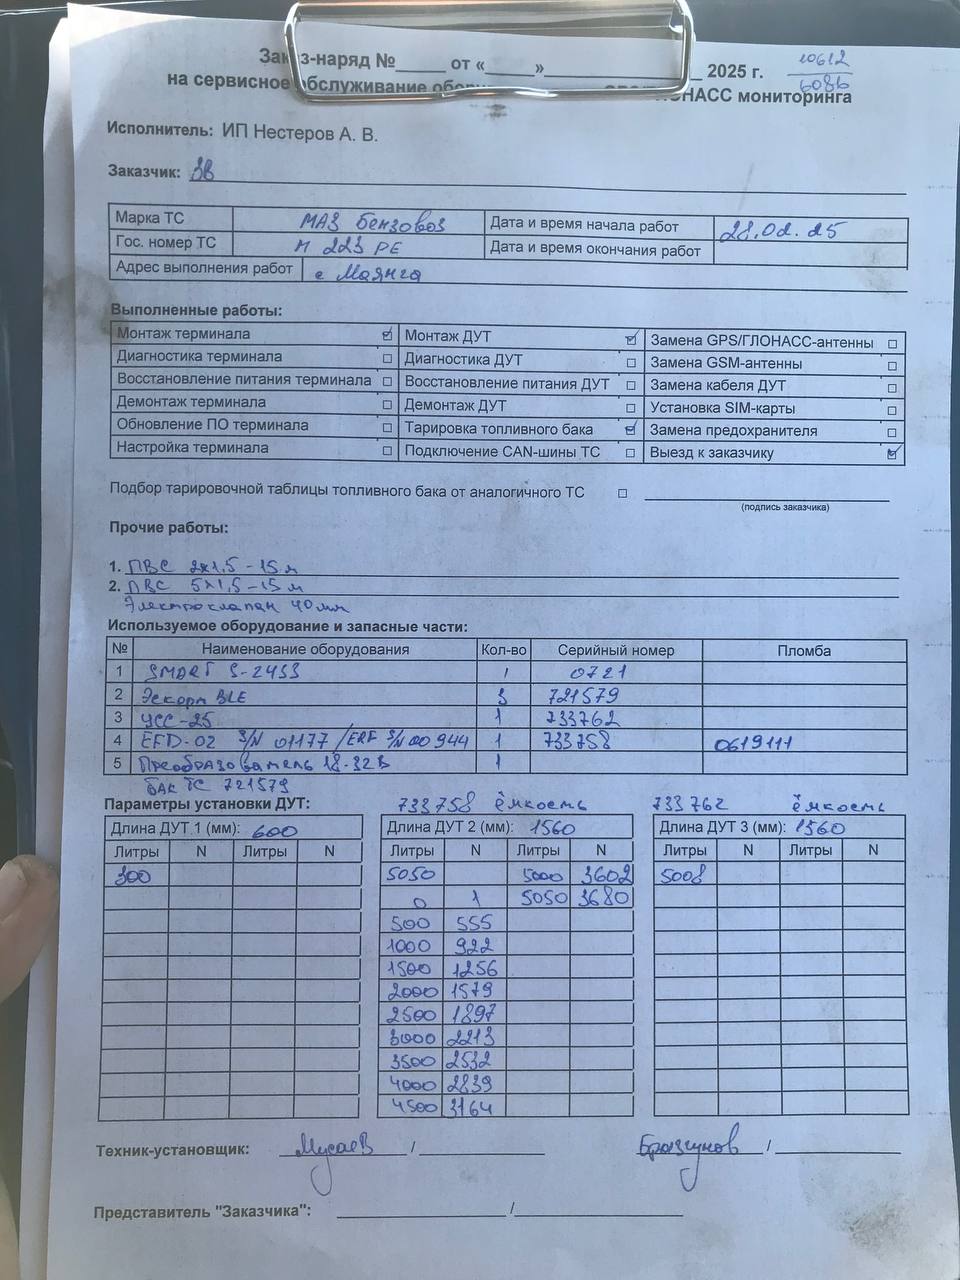 Заказ-наряд №_____ от «_____»______________ 2025 г. 10612
на сервисное обслуживание ГЛОНАСС мониторинга 6086
Исполнитель: ИП Нестеров А. В.
Заказчик: ЗВ
Марка ТС МАЗ бензовоз Дата и время начала работ 28.02.25
Гос. номер ТС М 223 РЕ Дата и время окончания работ
Адрес выполнения работ с Маянга
Выполненные работы:
Монтаж терминала ☑ Монтаж ДУТ ☑ Замена GPS/ГЛОНАСС-антенны ☐
Диагностика терминала ☐ Диагностика ДУТ ☐ Замена GSM-антенны ☐
Восстановление питания терминала ☐ Восстановление питания ДУТ ☐ Замена кабеля ДУТ ☐
Демонтаж терминала ☐ Демонтаж ДУТ ☐ Установка SIM-карты ☐
Обновление ПО терминала ☐ Тарировка топливного бака ☑ Замена предохранителя ☐
Настройка терминала ☐ Подключение CAN-шины ТС ☐ Выезд к заказчику ☑
Подбор тарировочной таблицы топливного бака от аналогичного ТС ☐
(подпись заказчика)
Прочие работы:
1. ПВС 2х1,5 - 15 м
2. ПВС 5х1,5 - 15 м
Электроклапан 40 мм
Используемое оборудование и запасные части:
№ Наименование оборудования Кол-во Серийный номер Пломба
1 SMART S-2433 1 0721
2 Эскорт BLE 3 721579
3 УСС-25 1 733762
4 EFD-02 S/N 01177 / ERF S/N 00944 1 733758 0619111
5 Преобразователь 18-32В 1
бак ТС 721579
Параметры установки ДУТ: 733758 ёмкость 733762 ёмкость
Длина ДУТ 1 (мм): 600 Длина ДУТ 2 (мм): 1560 Длина ДУТ 3 (мм): 1560
Литры N Литры N Литры N Литры N Литры N Литры N
300 5050 5000 3602 5008
0 1 5050 3680
500 555
1000 922
1500 1256
2000 1579
2500 1897
3000 2213
3500 2532
4000 2839
4500 3164
Техник-установщик: Мусаев / Брызгунов /
Представитель "Заказчика": /